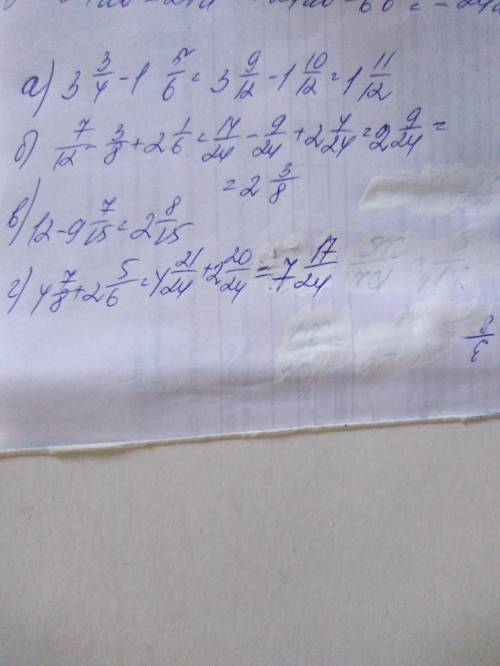 а) 3 3/4 - 1 5/6 = 3 9/12 - 1 10/12 = 1 11/12
б) 7/12 - 3/8 + 2 1/6 = 14/24 - 9/24 + 2 4/24 = 2 9/24 =
= 2 3/8
в) 12 - 9 7/15 = 2 8/15
г) 4 7/8 + 2 5/6 = 4 21/24 + 2 20/24 = 7 17/24